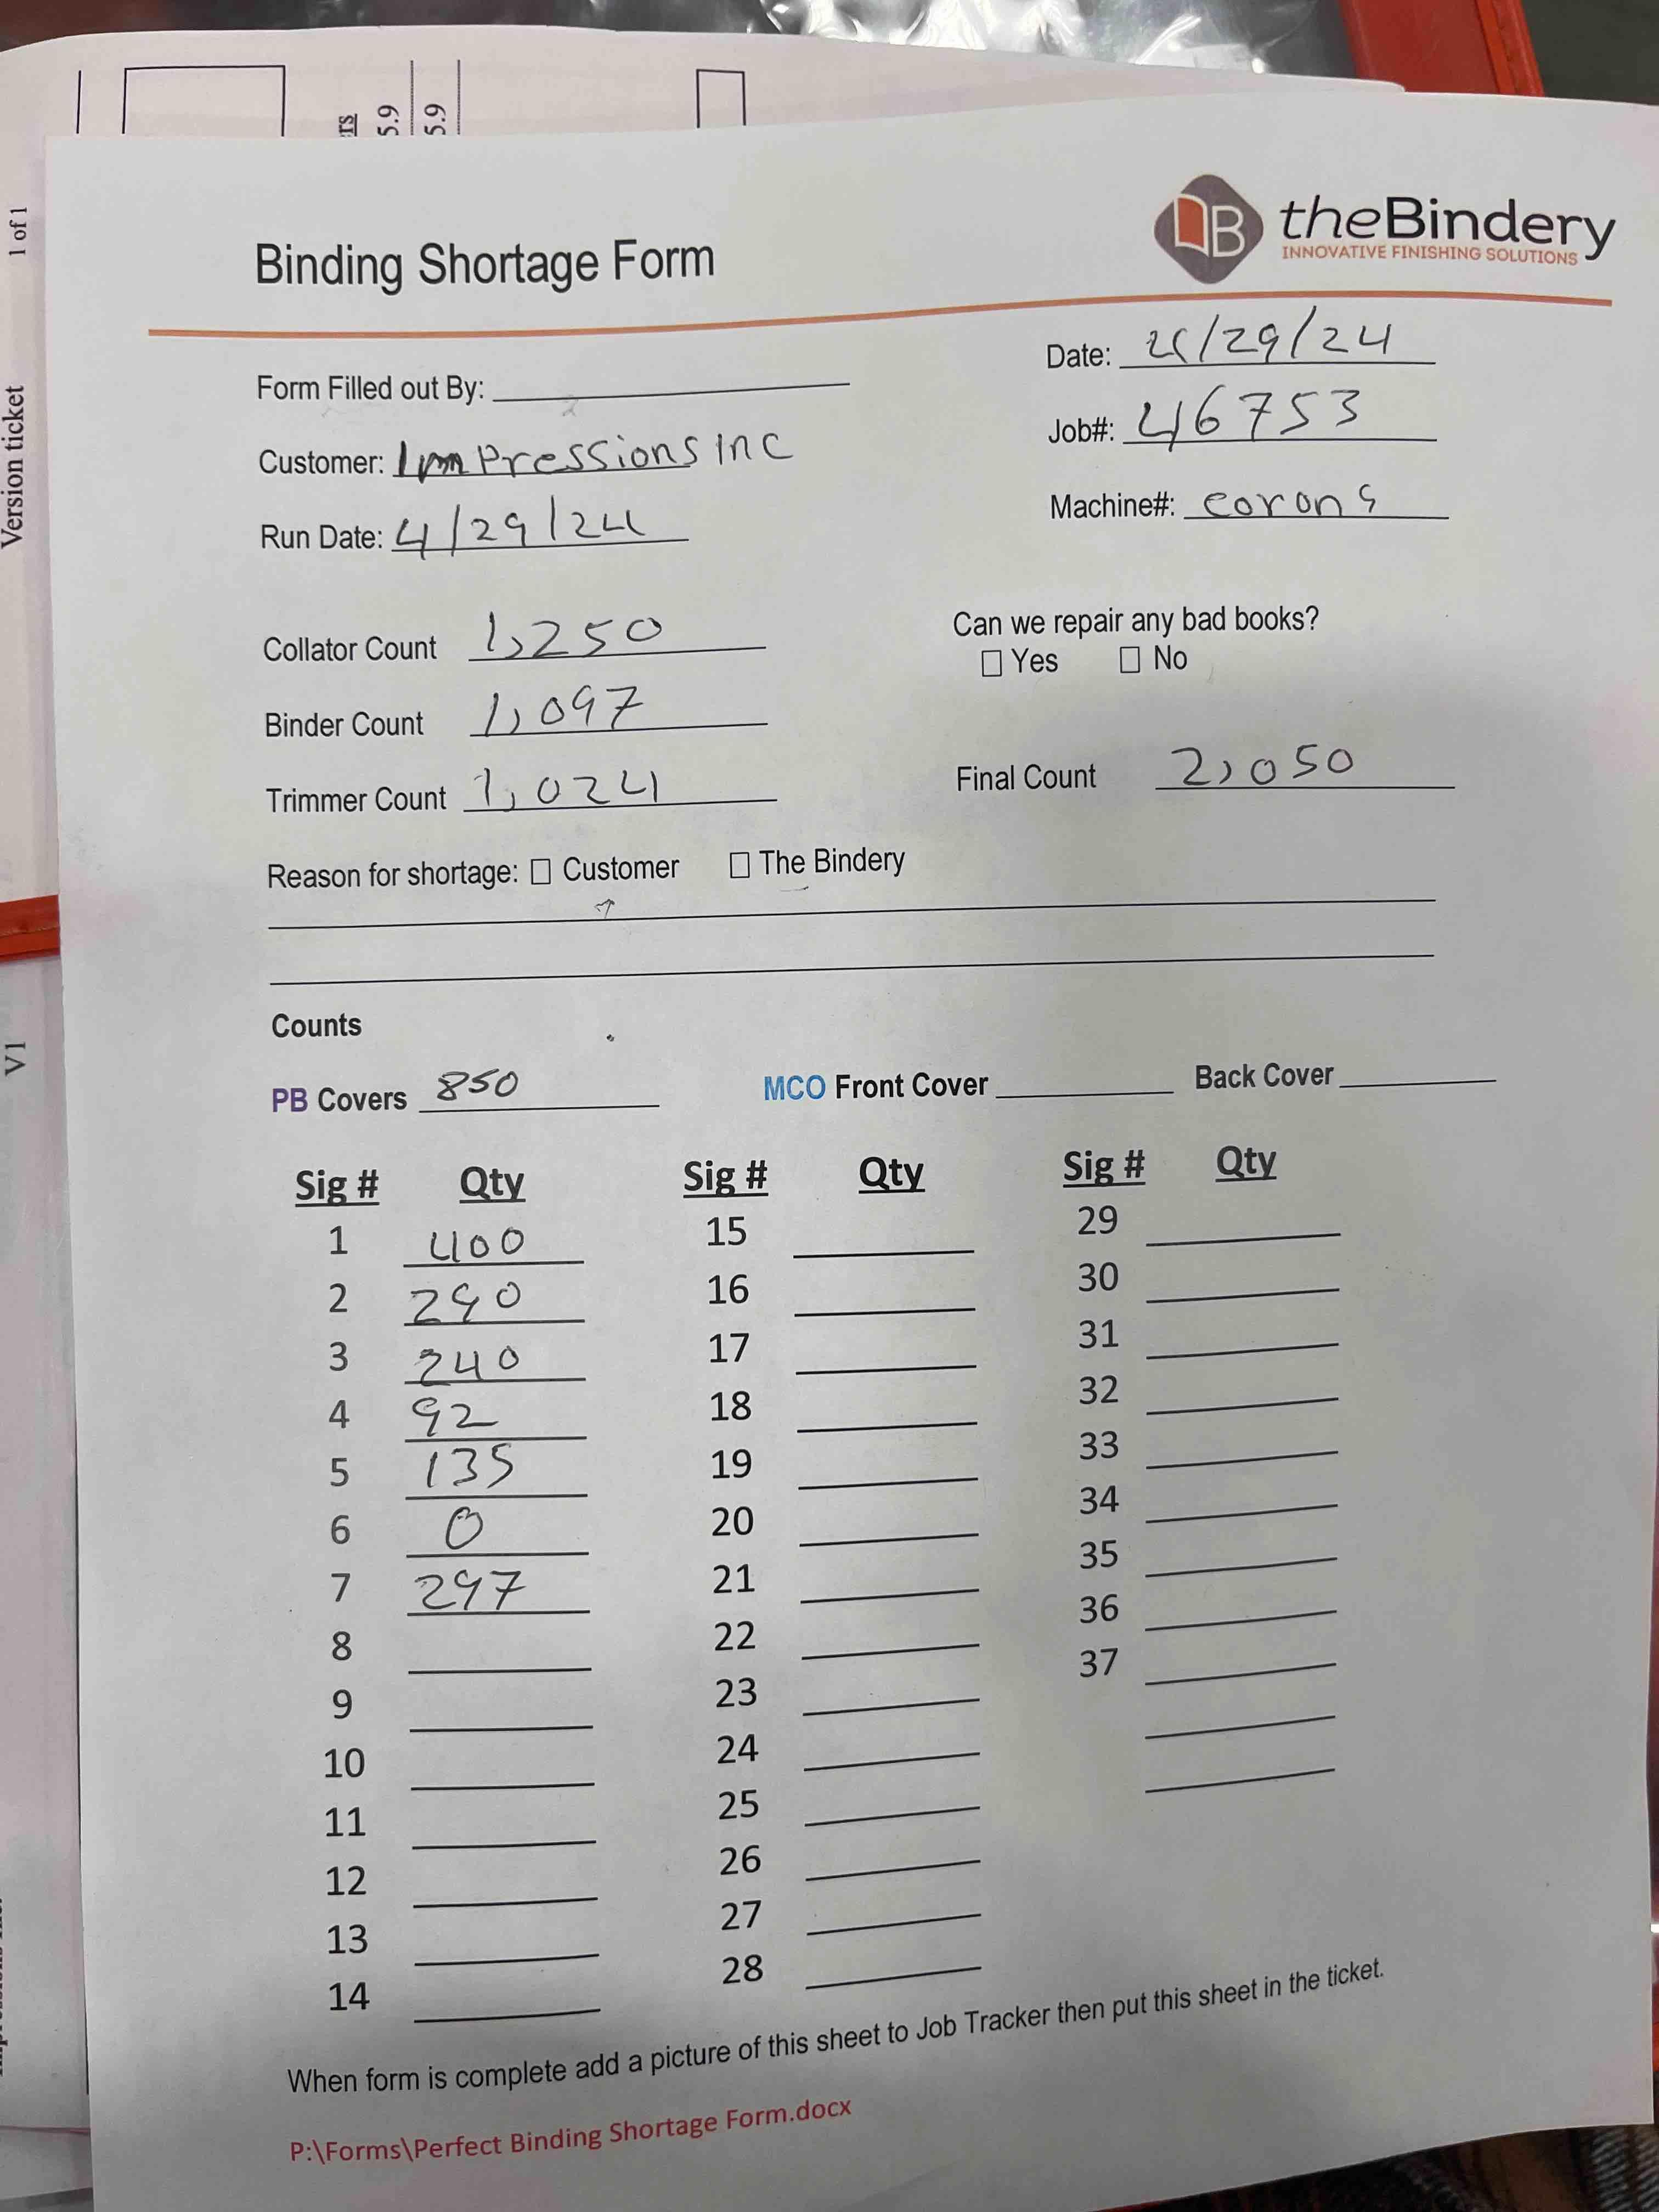 rs
5.9
5.9
1 of 1
Version ticket
V1
theBindery
INNOVATIVE FINISHING SOLUTIONS
Binding Shortage Form
Date: 4/29/24
Form Filled out By:
Job#: 46753
Customer: Impressions Inc
Machine#: corona
Run Date: 4/29/24
Can we repair any bad books?
Collator Count 1,250
Yes No
Binder Count 1,097
Final Count 2,050
Trimmer Count 1,024
Reason for shortage: Customer The Bindery
Counts
PB Covers 850 MCO Front Cover Back Cover
Sig # Qty Sig # Qty Sig # Qty
1 400 15 29
2 290 16 30
3 240 17 31
4 92 18 32
5 135 19 33
6 0 20 34
7 297 21 35
8 22 36
9 23 37
10 24
11 25
12 26
13 27
14 28
When form is complete add a picture of this sheet to Job Tracker then put this sheet in the ticket.
P:\Forms\Perfect Binding Shortage Form.docx